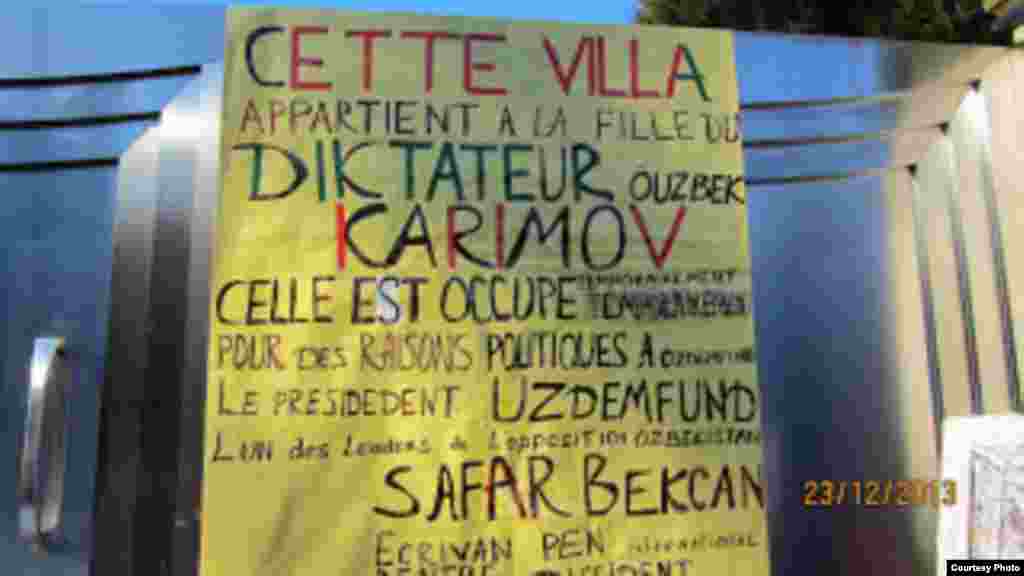 CETTE VILLA
APPARTIENT A LA FILLE DU
DIKTATEUR OUZBEK
KARIMOV
CELLE EST OCCUPE
POUR DES RAISONS POLITIQUES A
LE PRESIDEDENT UZDEMFUND
LUN des Leaders de L'opposition OZBEKISTAN
SAFAR BEKCAN
ECRIVAN PEN international
DISSIDENT
23/12/2013
Courtesy Photo